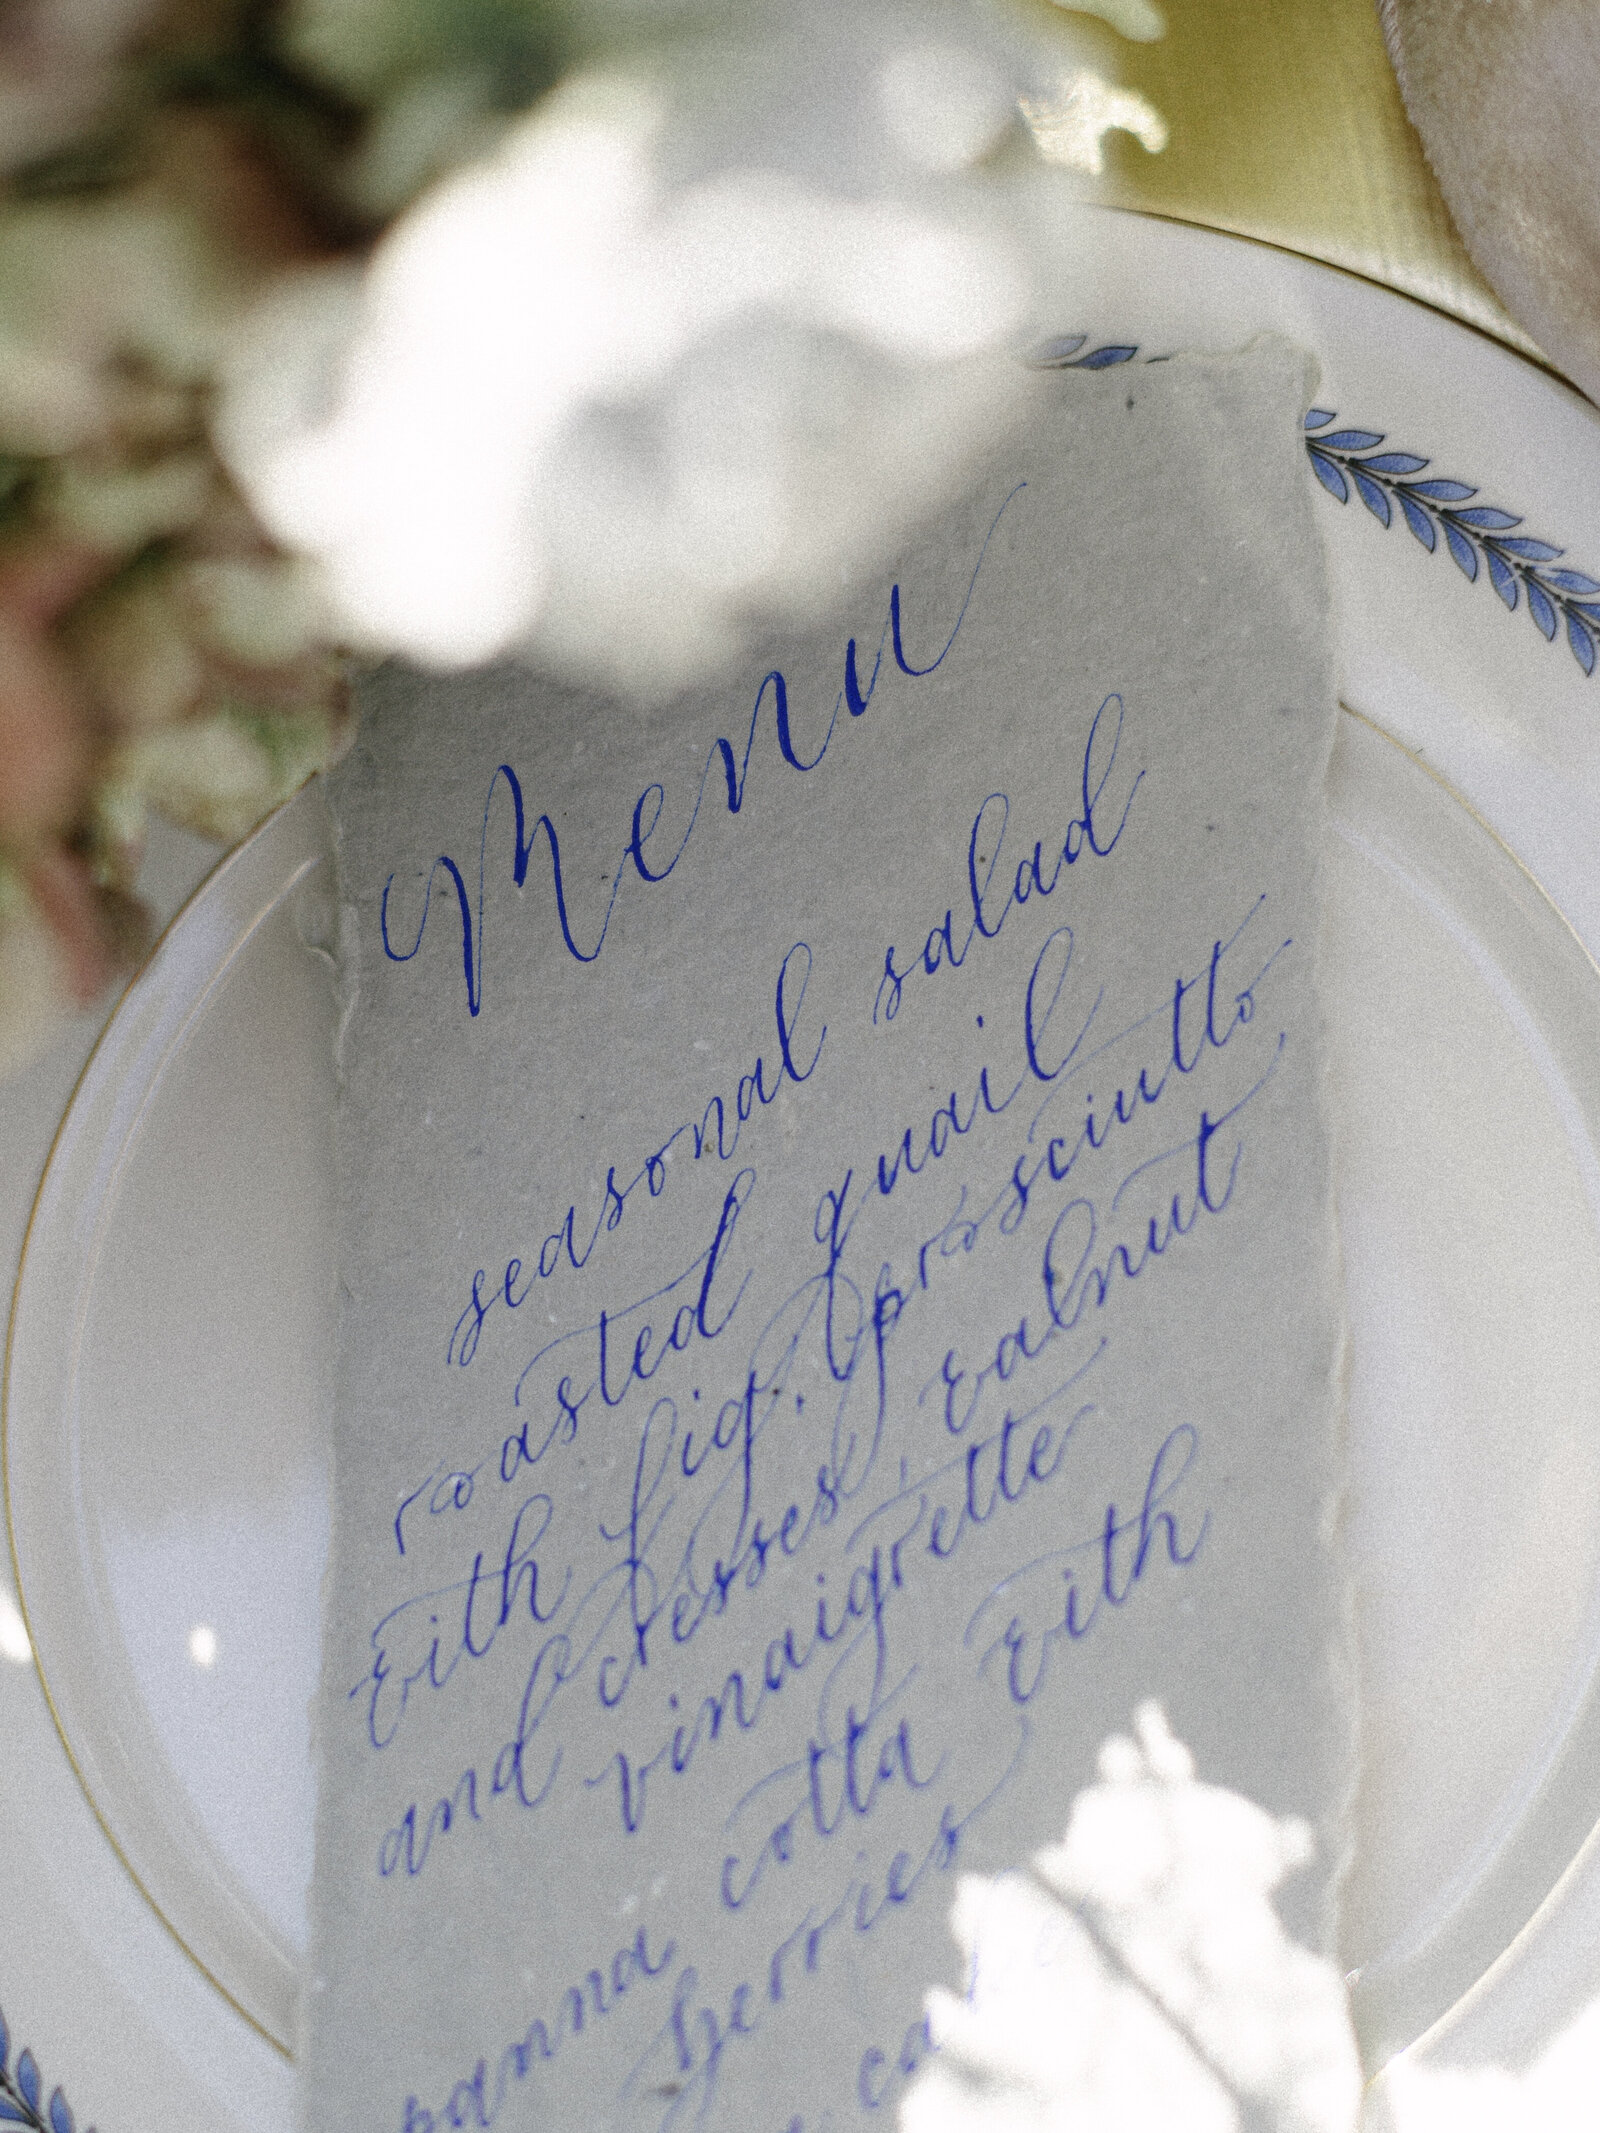 Menu
seasonal salad
roasted quail
with fig, prosciutto
and cresses, walnut
vinaigrette
panna cotta with
berries